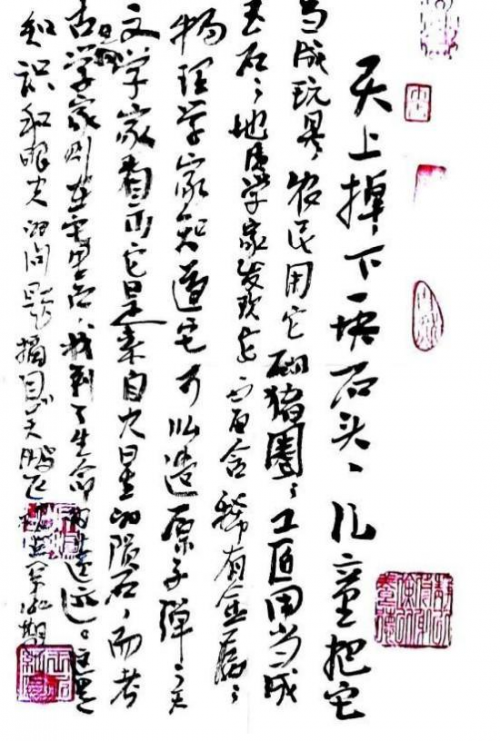 天上掉下一块石头、儿童把它
当成玩具、农民用它砌猪圈、工匠用当成
玉石、地质学家发现它富含稀有金属、
物理学家知道它可以造原子弹、天
文学家看出它是来自星的陨石，而考
古学家则在它里面，找到了生命的遗迹。这是
知识和眼光的问题 摘自